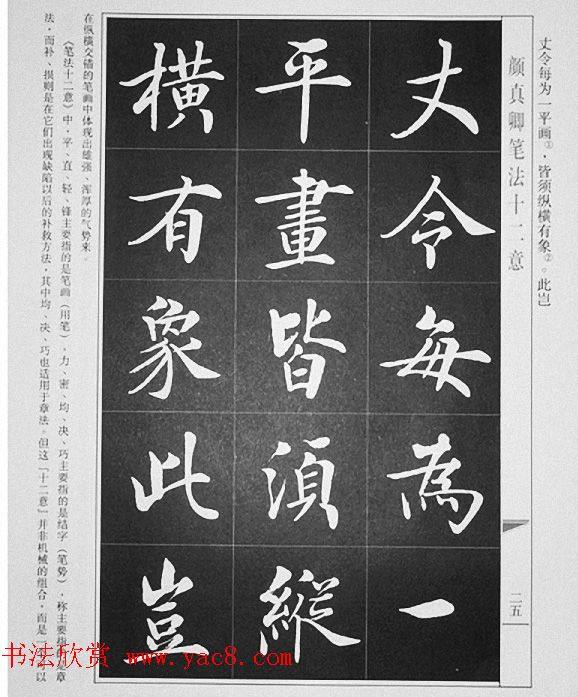 丈令每为一平画①，皆须纵横有象②。此岂
颜真卿笔法十二意
二五
丈令每為一
平畫皆須縱
橫有象此豈
在纵横交错的笔画中体现出雄强、浑厚的气势来。
《笔法十二意》中，平、直、轻、锋主要指的是笔画（用笔），力、密、均、决、巧主要指的是结字（笔势），称主要指的是章
法，而补、损则是在它们出现缺陷以后的补救方法，其中均、决、巧也适用于章法。但这「十二意」并非机械的组合，而是一以
书法欣赏 www.yac8.com